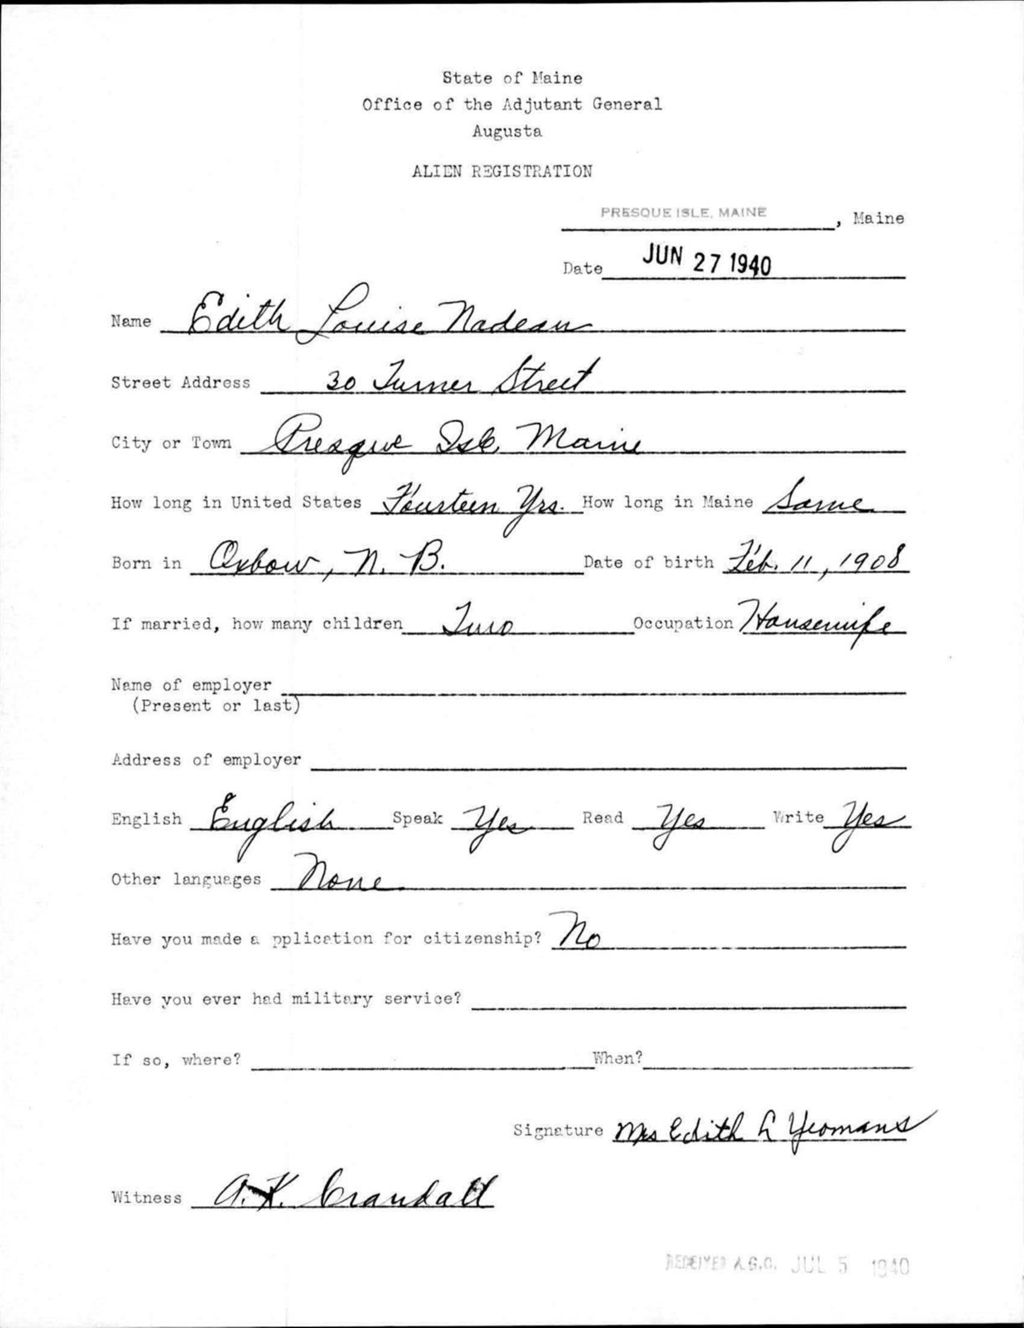 State of Maine
Office of the Adjutant General
Augusta
ALIEN REGISTRATION
PRESQUE ISLE, MAINE, Maine
Date JUN 27 1940
Name Edith Louise Nadeau
Street Address 30 Turner Street
City or Town Presque Isle, Maine
How long in United States Fourteen Yrs. How long in Maine Same
Born in Oxbow, N. B. Date of birth Feb. 11, 1908
If married, how many children Two Occupation Housewife
Name of employer
(Present or last)
Address of employer
English English Speak Yes Read Yes Write Yes
Other languages None
Have you made a pplication for citizenship? No
Have you ever had military service?
If so, where? When?
Signature Mrs Edith L Yeomans
Witness A. K. Crandall
RECEIVED A.G.O. JUL 5 1940